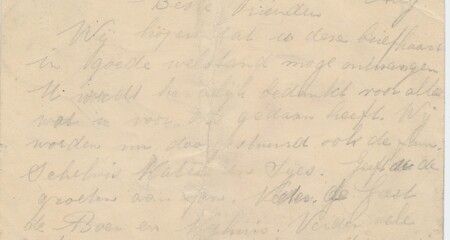 Beste Vrienden
Wij hopen dat u deze briefkaart
in goede welstand moge ontvangen
U wordt hartelijk bedankt voor alles
wat u voor ons gedaan heeft. Wij
worden nu doorgestuurd ook de fam.
Schelvis Katz en Sjes. de
groeten aan fam. Veder, de Gast
de Boer en Verder vele